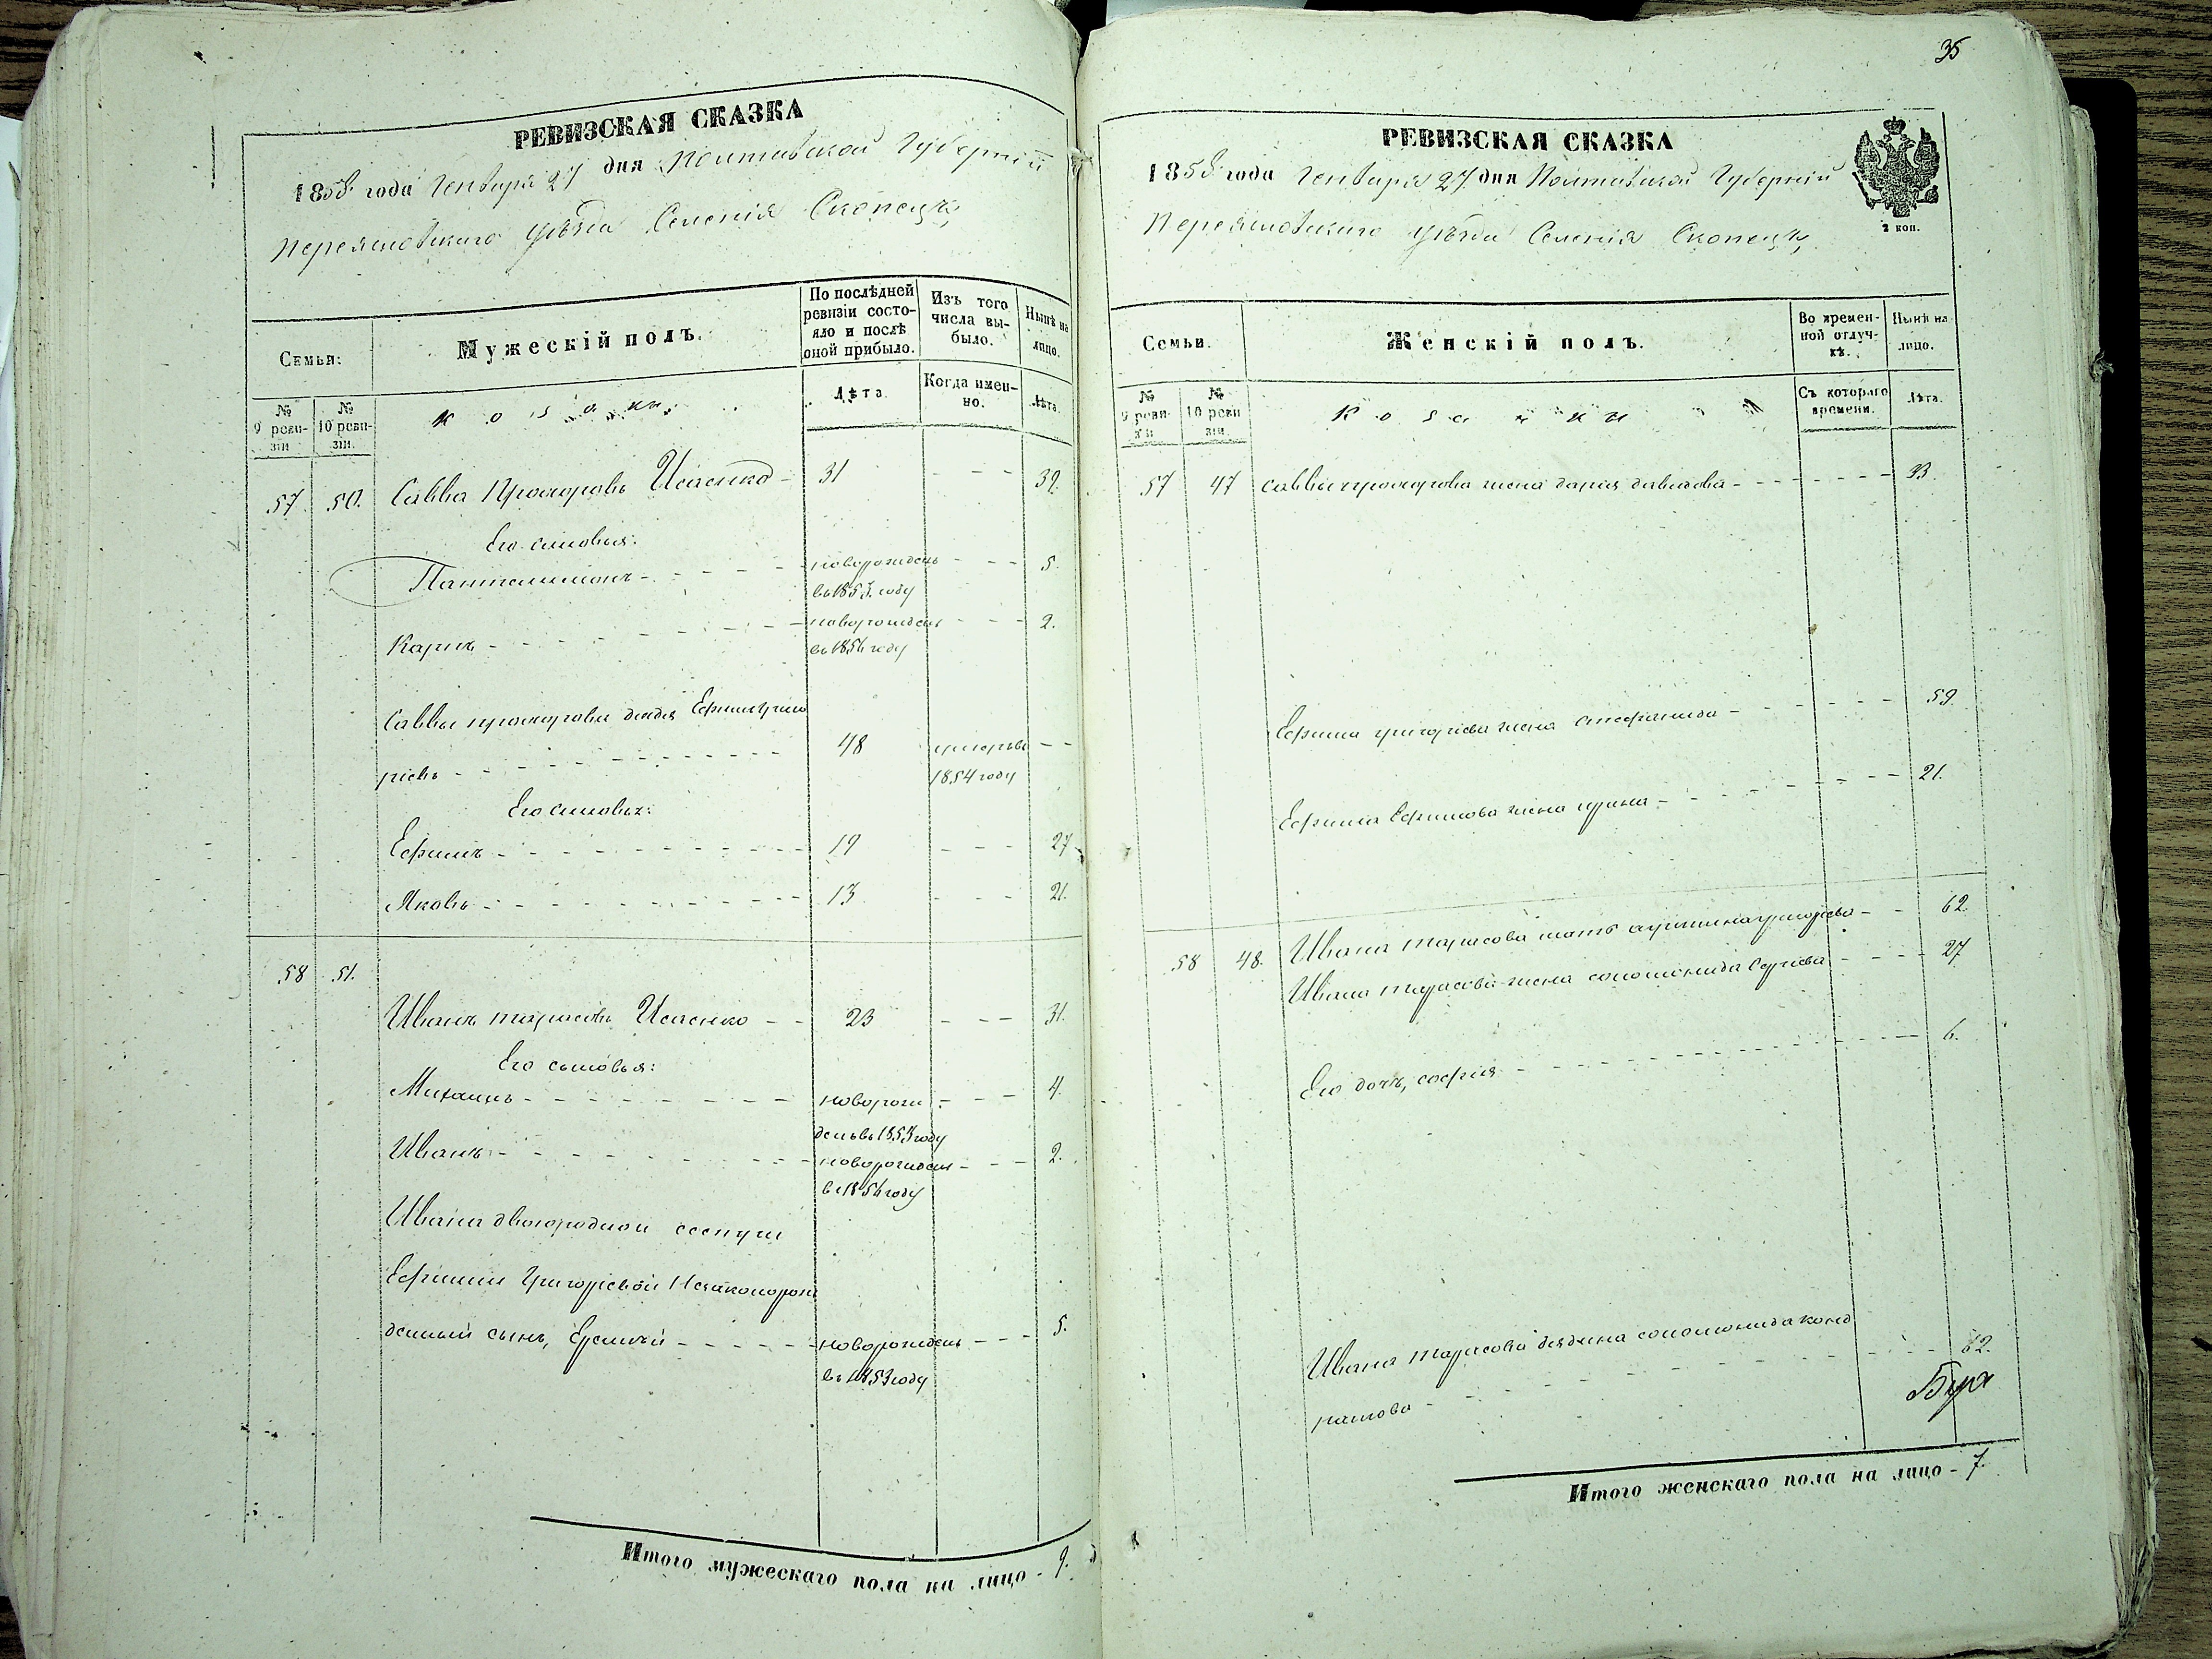 РЕВИЗСКАЯ СКАЗКА
1858 года Генваря 27 дня Полтавской Губерніи
Переяславскаго уѣзда Селенія Скопецкъ
Семьи:
Мужескій полъ.
По послѣдней ревизіи состояло и послѣ оной прибыло.
Изъ того числа выбыло.
Нынѣ на лицо.
№ 9 ревизіи
№ 10 ревизіи.
Козаки
Лѣта
Когда именно.
Лѣта.
57 50. Савва Прохоровъ Исаенко - 31 - - - 39.
Его сыновья:
Панталимонъ - - - - - новорожденъ - - - 5
въ 1853 году
Карпъ - - - - - - новорожденъ - - - 2.
въ 1856 году
Саввы прохорова дядя Ефимъ григо
ріевъ - - - - - - 48 умеръ въ - -
1854 году
Его сыновья:
Ефимъ - - - - - - 19 - - - 27
Яковъ - - - - - - 13 - - - 21.
58 51.
Иванъ тарасовъ Исаенко - - 23 - - - 31.
Его сыновья:
Михаилъ - - - - - - новорож - - - 4.
денъ въ 1853 году
Иванъ - - - - - - новорожденъ - - - 2.
въ 1856 году
Ивана двоюродной сестры
Ефиміи Григоріевой Незаконорож
денный сынъ, - - - - - новорожденъ - - - 5.
въ 1853 году
Итого мужескаго пола на лицо - 9.
35
РЕВИЗСКАЯ СКАЗКА
1858 года Генваря 27. дня Полтавской Губерніи
Переяславскаго уѣзда Селенія Скопецкъ
2 коп.
Семьи.
Женскій полъ.
Во временной отлучкѣ.
Нынѣ на лицо.
№ 9 ревизіи
№ 10 ревизіи.
Козачки
Съ котораго времени.
Лѣта.
57 47 Саввы прохорова жена дарія давидова - - - - - - - 33.
Ефима григоріева жена стефанида - - - - - - 59.
Ефима Ефимова жена ирина - - - - - - 21.
58 48. Ивана тарасова мать григорьева - - 62.
Ивана тарасова жена соломонида Сергіева - - - - 27
Его дочь, софія - - - - - - 6.
Ивана тарасова дядина соломонида конд
ратова - - - - - - 62.
Итого женскаго пола на лицо - 7.